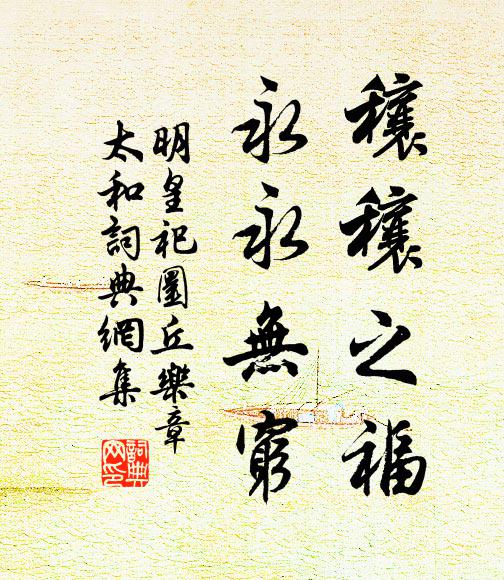 穰穰之福
永永無窮
明皇祀圜丘樂章
太和詞典網集
詞典
网印